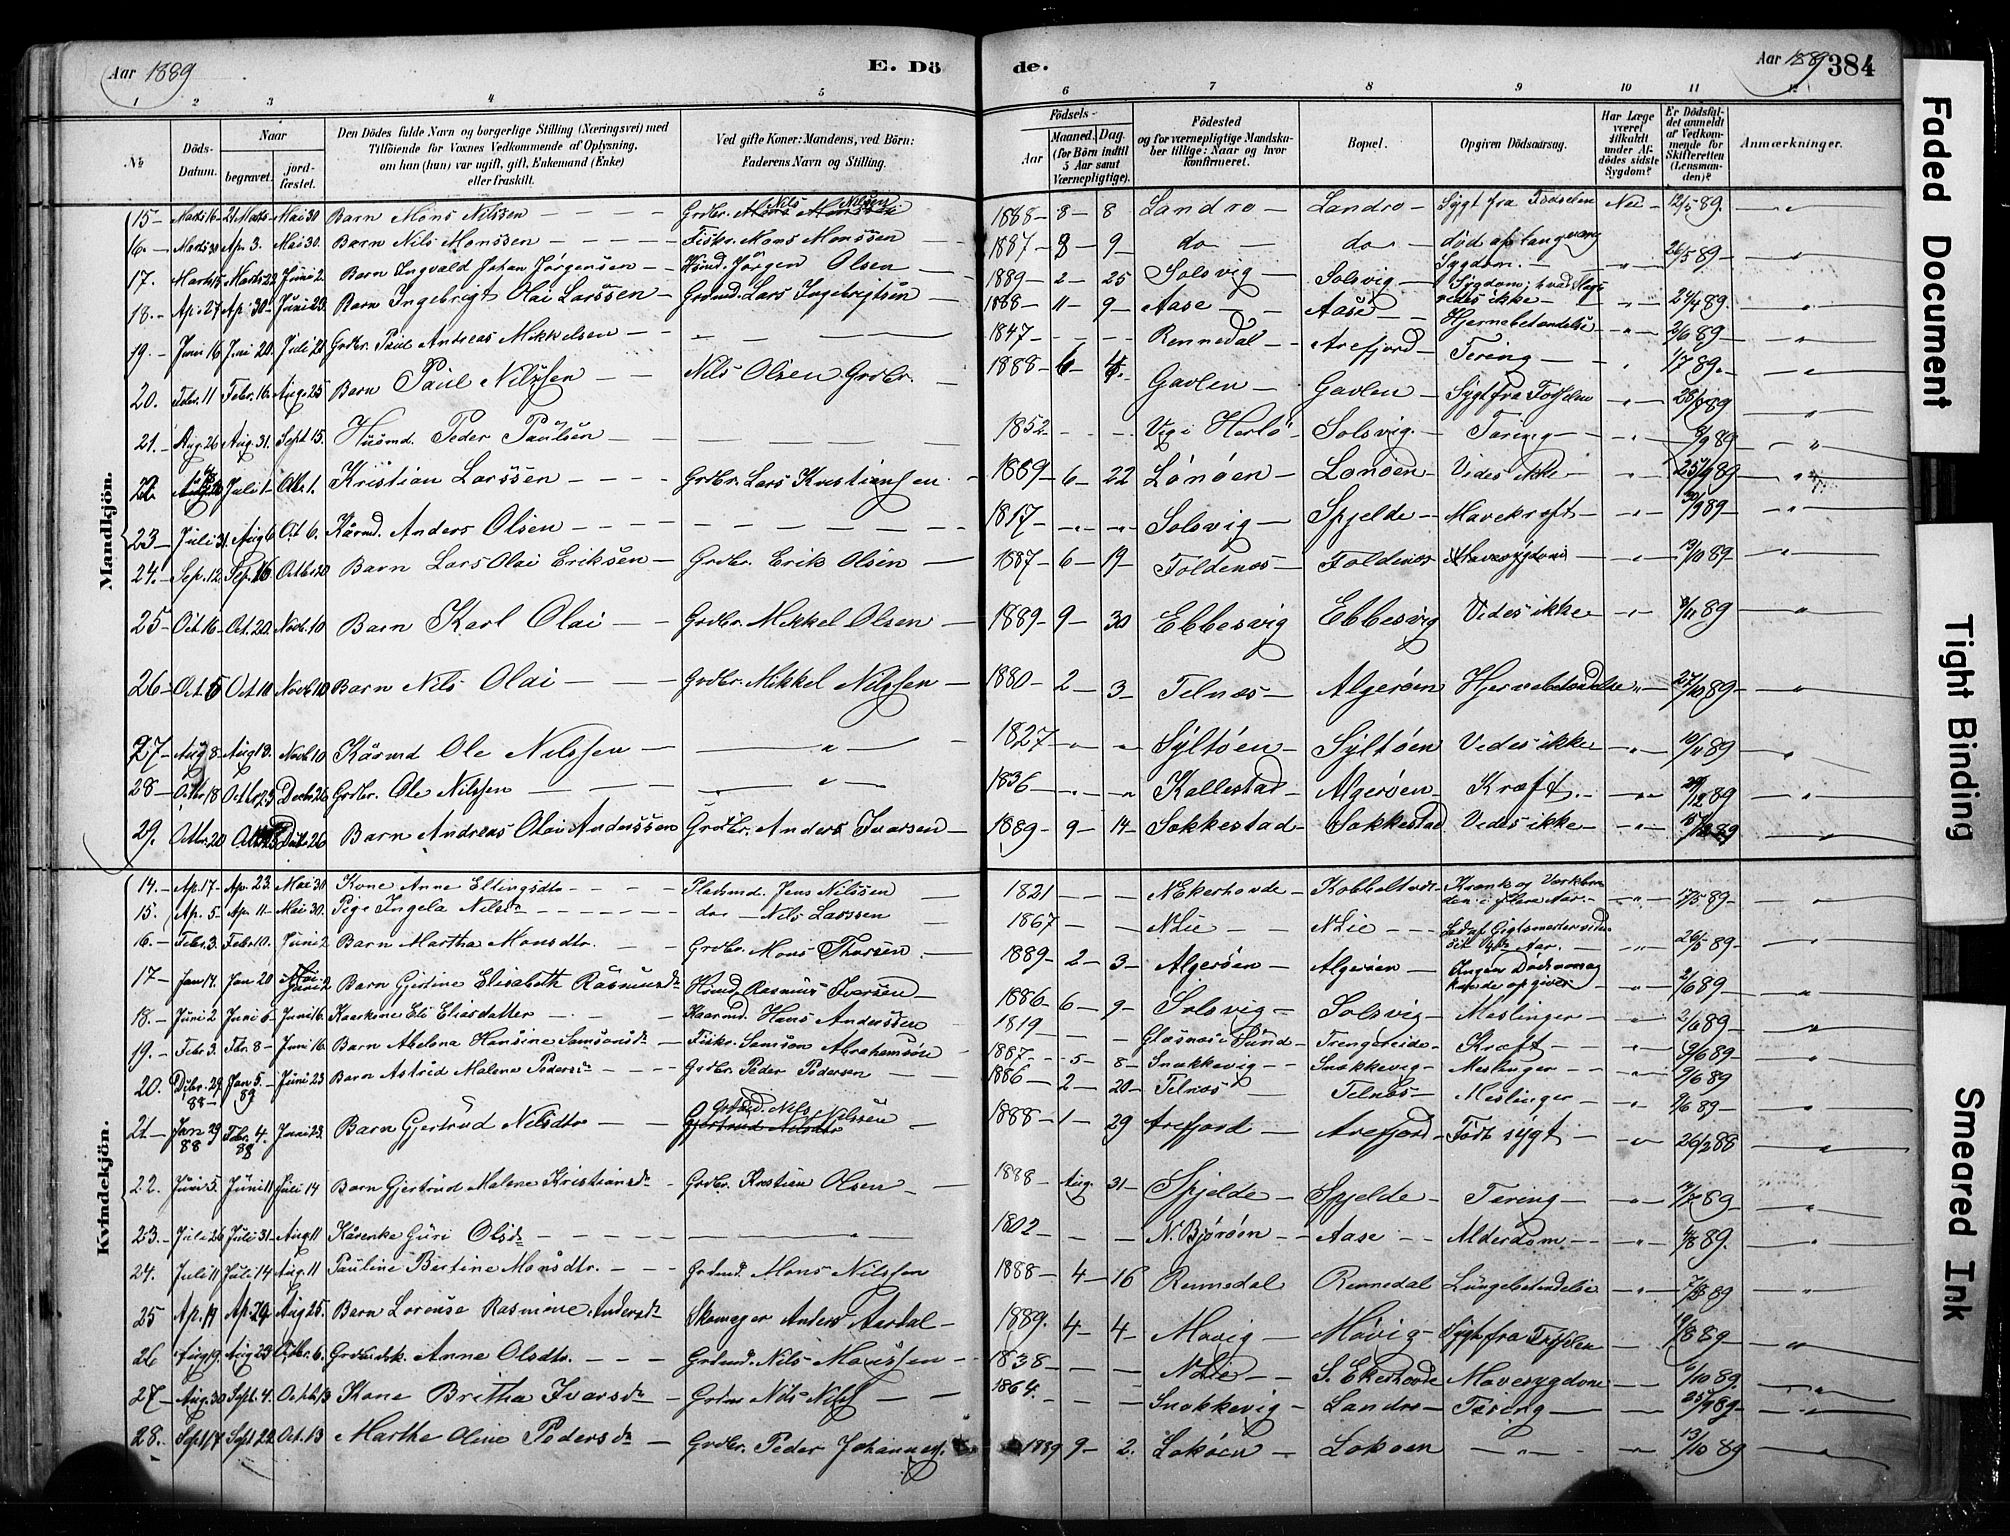 Aar 1889
E. Dö
de.
Aar 1889
384
1 2 3 4 5 6 7 8 9 10 11 12
№
Döds-Datum.
Naar
begravet.
jordfæstet.
Den Dödes fulde Navn og borgerlige Stilling (Næringsvei) med Tilföiende for Voxnes Vedkommende af Oplysning, om han (hun) var ugift, gift, Enkemand (Enke) eller fraskilt.
Ved gifte Koner: Mandens, ved Börn: Faderens Navn og Stilling.
Födsels-
Aar
Maaned. Dag.
(for Börn indtil 5 Aar samt Værnepligtige).
Födested og for værnepligtige Mandskaber tillige: Naar og hvor konfirmeret.
Bopæl.
Opgiven Dödsaarsag.
Har Læge været tilkaldt under Afdödes sidste Sygdom?
Er Dödsfaldet anmeldt af Vedkommende for Skifteretten (Lensmanden)?
Anmærkninger.
Mandkjön.
15 - Marts 16 - 21 Marts - Mai 30 Barn Mons Nilssen - Grdbr. Nils Nilssen 1888 - 8 - 8 Landro - Landro - Sygt fra Fødselen Nei - 12/5 89.
16. - Marts 30 Ap. 3. Mai 30. Barn Nils Monssen - Fiskr. Mons Monssen 1887 - 8 - 9 - do - do - død af langvarig Sygdom. - 26/5 89 -
17. Marts 15 Marts 22 Juni 2. Barn Ingvald Johan Jörgensen - Husmd. Jörgen Olsen - 1889 - 2 - 25 Solsvig - Solsvig - Sygdom, hvad Slags vides ikke -
18. - Ap. 27 Ap. 30 - Juni 23 - Barn Ingebrigt Olai Larssen - Grdmd. Lars Ingebrigtsen - 1888 - 11 - 9 - Aase - Aase - Hjernebetændelse - 2/6 89
19. - Juni 16 Juni 20. Juli 21 Grdbr. Paul Andreas Mikkelsen - 1847 - Rennedal - Arefjord - Tering - 1/7 89.
20. Febr. 11 Febr. 16. Aug. 25 Barn Paul Nilssen - Nils Olsen Grdbr. 1888 - 6 - Gavlen - Gavlen - Sygt fra Fødselen - 28/7 89
21. - Aug. 26 Aug. 31. Sept. 15. Husmd. Peder Paulsen - 1852 - Vig i Herlö - Solsvig - Tæring - 8/9 89 -
22. Juli 1 - Otb. 1. Kristian Larssen - Grdbr. Lars Kristiansen 1889 - 6 - 22 Lönöen - Lonöen - Vides ikke - 25/9 89 -
23 - Juli 31. Aug 6 Oct 6. Kårmd. Anders Olsen - 1817 - Solsvig - Spjelde - Mavekræft - 30/9 89 -
24. - Sep. 12 Sep. 16 Octb. 20 Barn Lars Olai Eriksen - Grdbr. Erik Olsen - 1887 - 6 - 19 - Foldenæs - Foldenes - Mavesygdom 13/10 89 -
25 - Oct 16 - Oct. 20 Novb. 10 Barn Karl Olai - Grdbr. Mikkel Olsen - 1889 - 9 - 30 Ebbesvig Ebbesvig Vides ikke - 9/11 89 -
26 - Oct. 5 Oct 10 Novb. 10 Barn Nils Olai - Grdbr. Mikkel Nilssen - 1880 - 2 - 3 - Telnæs - Algeröen Hjernebetændelse - 27/10 89 -
27 - Aug 8 - Aug 13. Novb. 10 Kårmd Ole Nilssen - 1827 - Syltöen - Syltöen Vides ikke - 10/11 89 -
28 - Octbr. 18 Octbr 23 Decb 26 Grdbr. Ole Nilssen - 1836 - Kallestad - Algeröen - Kræft. - /12 89
29. Octbr. 20 Decb. 26 Barn Andreas Olai Anderssen Grdbr. Anders Ivarsen - 1889 - 9 - 14 - Søkkestad - Søkkestad Vides ikke -
Kvindekjön.
14. - Ap. 17 - Ap. 23. Mai 30 Kone Anne Ellingsdtr - Pladsmd. Jens Nilssen 1821 - N Ekerhovde - Kobbeltvedt - Krank og Værkbruden i flere Aar. - 17/5 89 -
15. Ap. 5 - Ap. 11 - Mai 30. Pige Ingela Nilsdr - do - Nils Larssen 1867 - N Lie - N Lie -
16. - Febr. 3. Febr. 10. Juni 2 Barn Martha Monsdtr. - Grdbr. Mons Thorsen. - 1889 - 2 - 3 - Algeröen - Algeröen - Ingen Dødsaarsag kunde opgives - 26/5 89 -
17 - Jan 14. Jan 20 Juni 2 Barn Gjertine Elisabeth Rasmusdr Husmd. Rasmus Iversen - 1886 - 6 - 9 - Solsvig - Solsvig - Meslinger - 2/6 89 -
18. - Juni 2 Juni 6 - Juni 16. Kaarkone Eli Eliasdatter - Kaarmd. Hans Anderssen 1819 - Glæsnæs i Sund - Trengereide - Kræft - 2/6 89 -
19. - Febr. 3. Fbr. 8 - Juni 16. Barn Abelona Hansine Samsonsdr - Fiskr. Samson Abrahamsen 1887 - 5 - 8 - Snekkevig - Snekkevig - Meslinger - 9/6 89 -
20. Dcbr. 29 88 - Jan 5. 89 Juni 23 Barn Astrid Malene Pedersdr - Grdbr. Peder Pedersen - 1886 - 2 - 20 - Telnæs - Telnæs - Meslinger - 9/6 89
21. - Jan 29 88 Febr. 4. 88 Juni 23. Barn Gjertrud Nilsdtr - Grdmd. Nils Nilssen 1888 - 1 - 29 Arefjord - Arefjord - Födt sygt - 26/2 88
22. Juni 5. Juni 11 Juli 14 Barn Gjertrud Malene Kristiansdr Grdbr. Kristian Olsen - 1888 - Aug. 31 - Spjelde - Spjelde - Tæring - 14/7 89 -
23. - Juli 26 Juli 31 - Aug 11 Kårenke Guri Olsdr - 1802 - N. Björöen - Aase - Alderdom. - 4/8 89.
24. Juli 11 Juli 14 Aug. 11 Pauline Bertine Monsdtr. - Grdmd. Mons Nilssen 1888 - 4 - 16 Rennedal Rennedal Lungebetændelse 7/8 89
25 Ap. 19 Ap. 24 Aug 25. Barn Lorense Rasmine Andersdr Skomager Anders Aardal - 1889. 4 - 4 - Movig - Mövig - Sygt fra Födselen 19/8 89 -
26 Aug 19. Aug 23 Octbr. 6. Grdmdsk. Anne Olsdtr. - Grdmd. Nils Monssen - 1838 - N Lie - S. Ekerhovde Mavesygdom - 6/10 89.
27 - Aug. 30 Sept. 4. Octb. 13 Kone Britha Ivarsdr Grdmd Nils Nilss - 1864. - Snekkevig - Landro - Tæring - 25/9 89 -
28. Sept 17 Sept 22 Oct. 13 Marthe Oline Pedersdr - Grdbr. Peder Johannes. 1889 9 - 2. Loköen - Lokoen - 13/10 89
Faded Document
Tight Binding
Smeared Ink